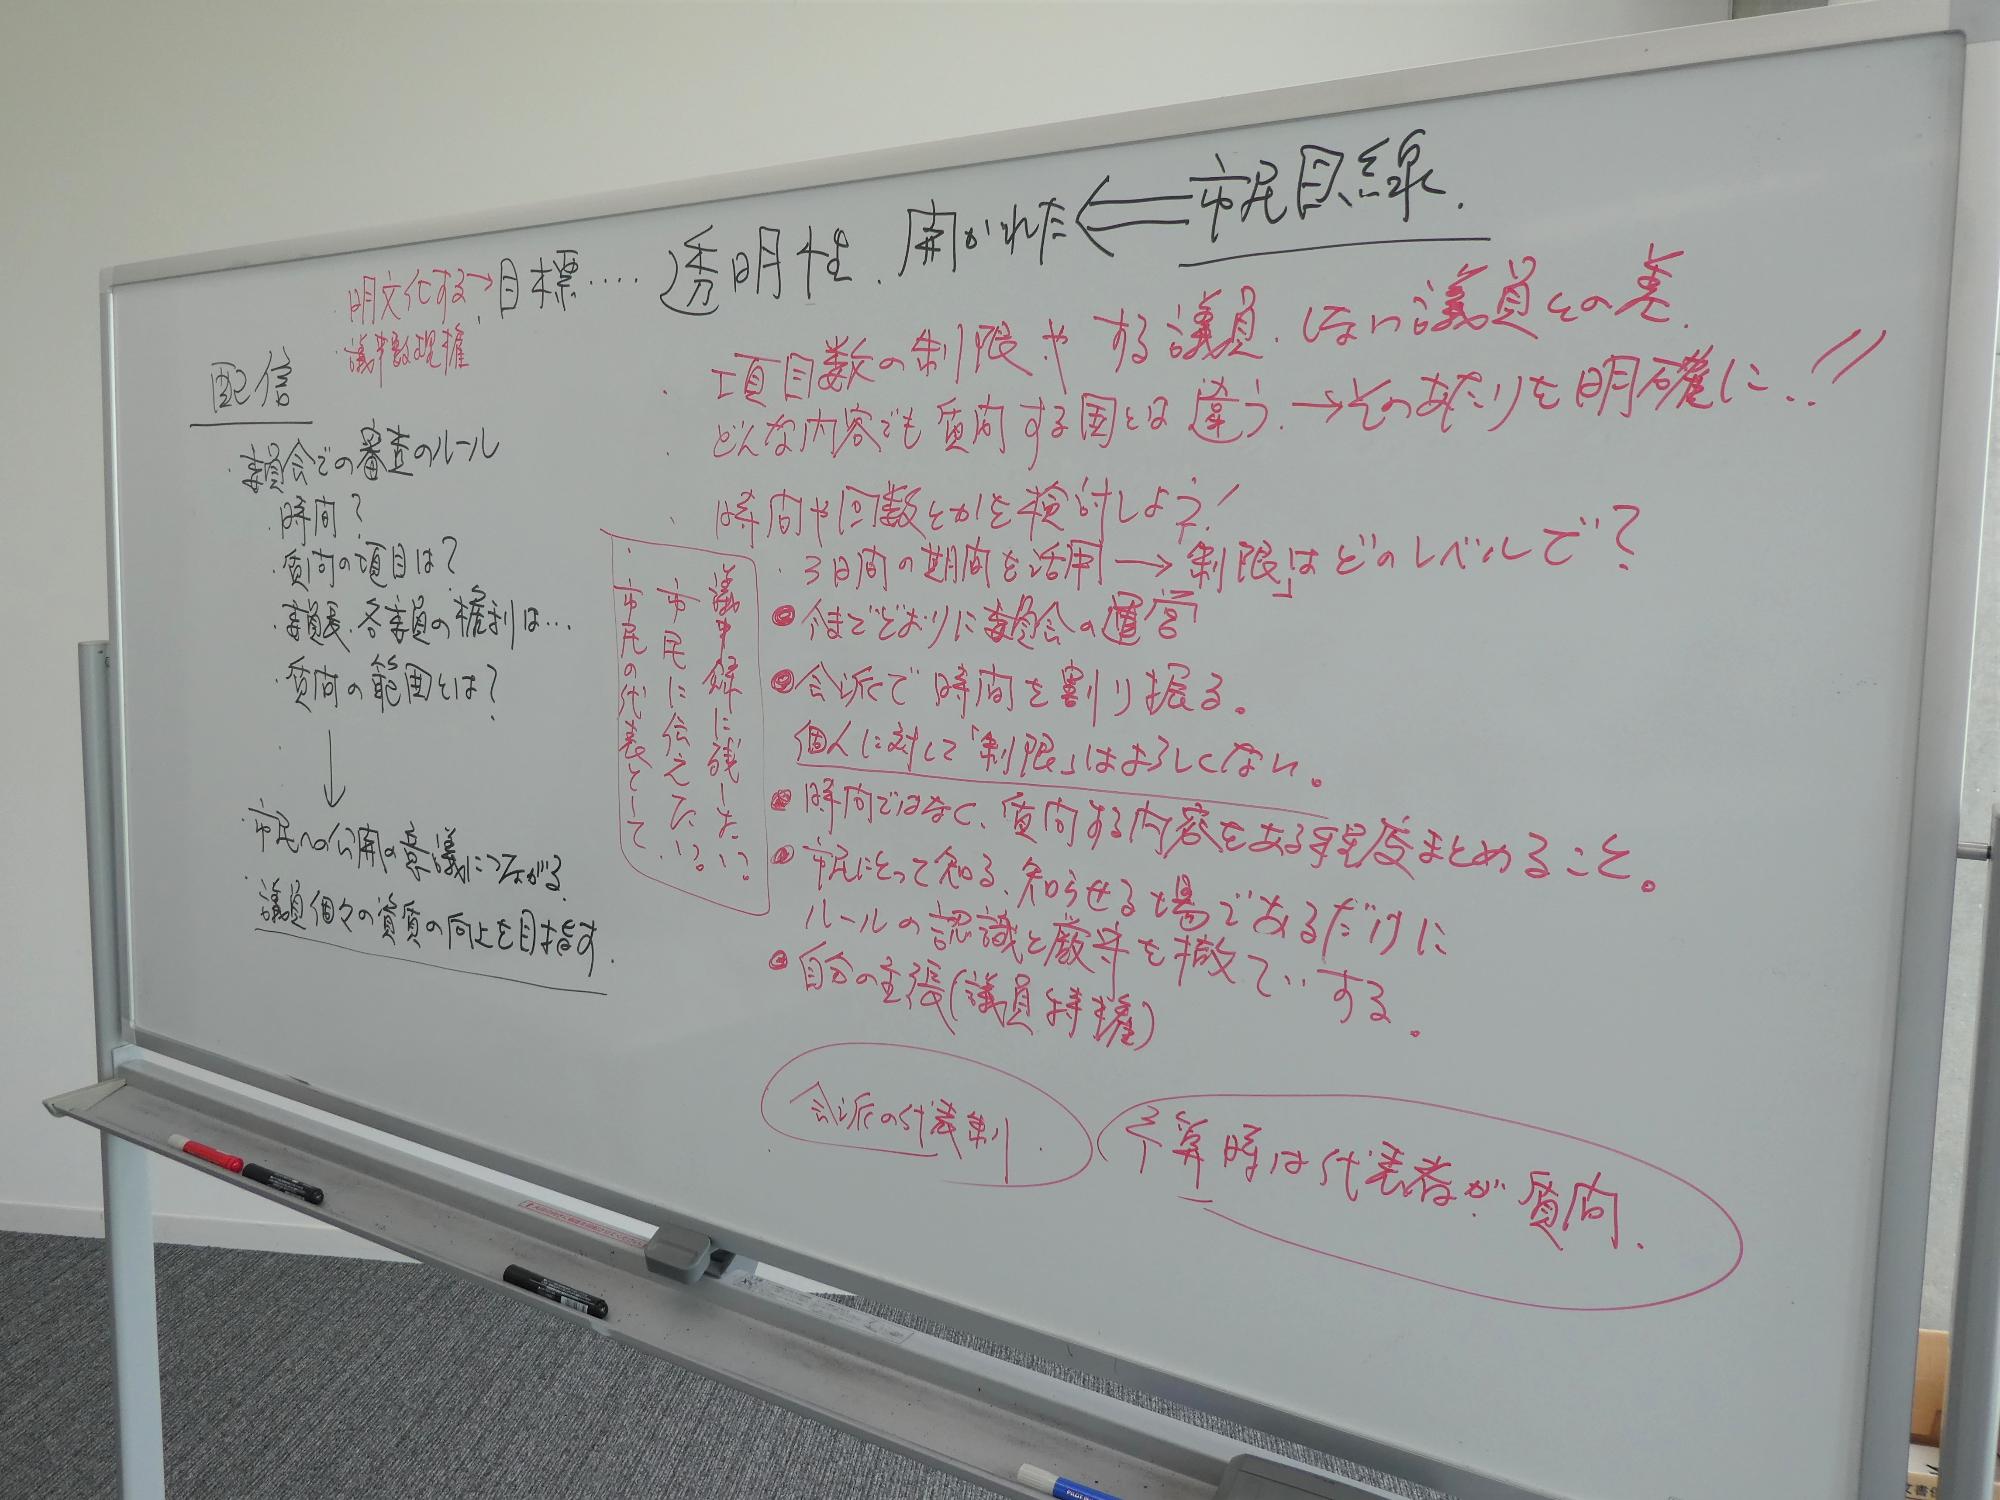 市民目線.
透明性. 開かれた
明文化する→目標‥‥
配信
・委員会での審査のルール
・時間?
・質問の項目は?
・委員長、各委員の権利は…
・質問の範囲とは?
↓
市民への公開の意議につながる.
議員個々の資質の向上を目指す.
・項目数の制限や する議員. しない議員との差.
・どんな内容でも質問する国とは違う. →そのあたりを明確に..!!
・時間や回数とかを検討しよう!
・3日間の期間を活用 → 制限」はどのレベルで?
議事録に残したい?
市民に伝えている。
市民の代表として、
●今までどおりに委員会の運営
●会派で時間を割り振る。
個人に対して「制限」はよろしくない。
●時間ではなく、質問する内容をある程度まとめること。
●市民にとって知る、知らせる場であるだけに
ルールの認識と厳守を徹てぃする。
●自分の主張(議員特権)
会派の代表制.
予算時は代表者が質問.